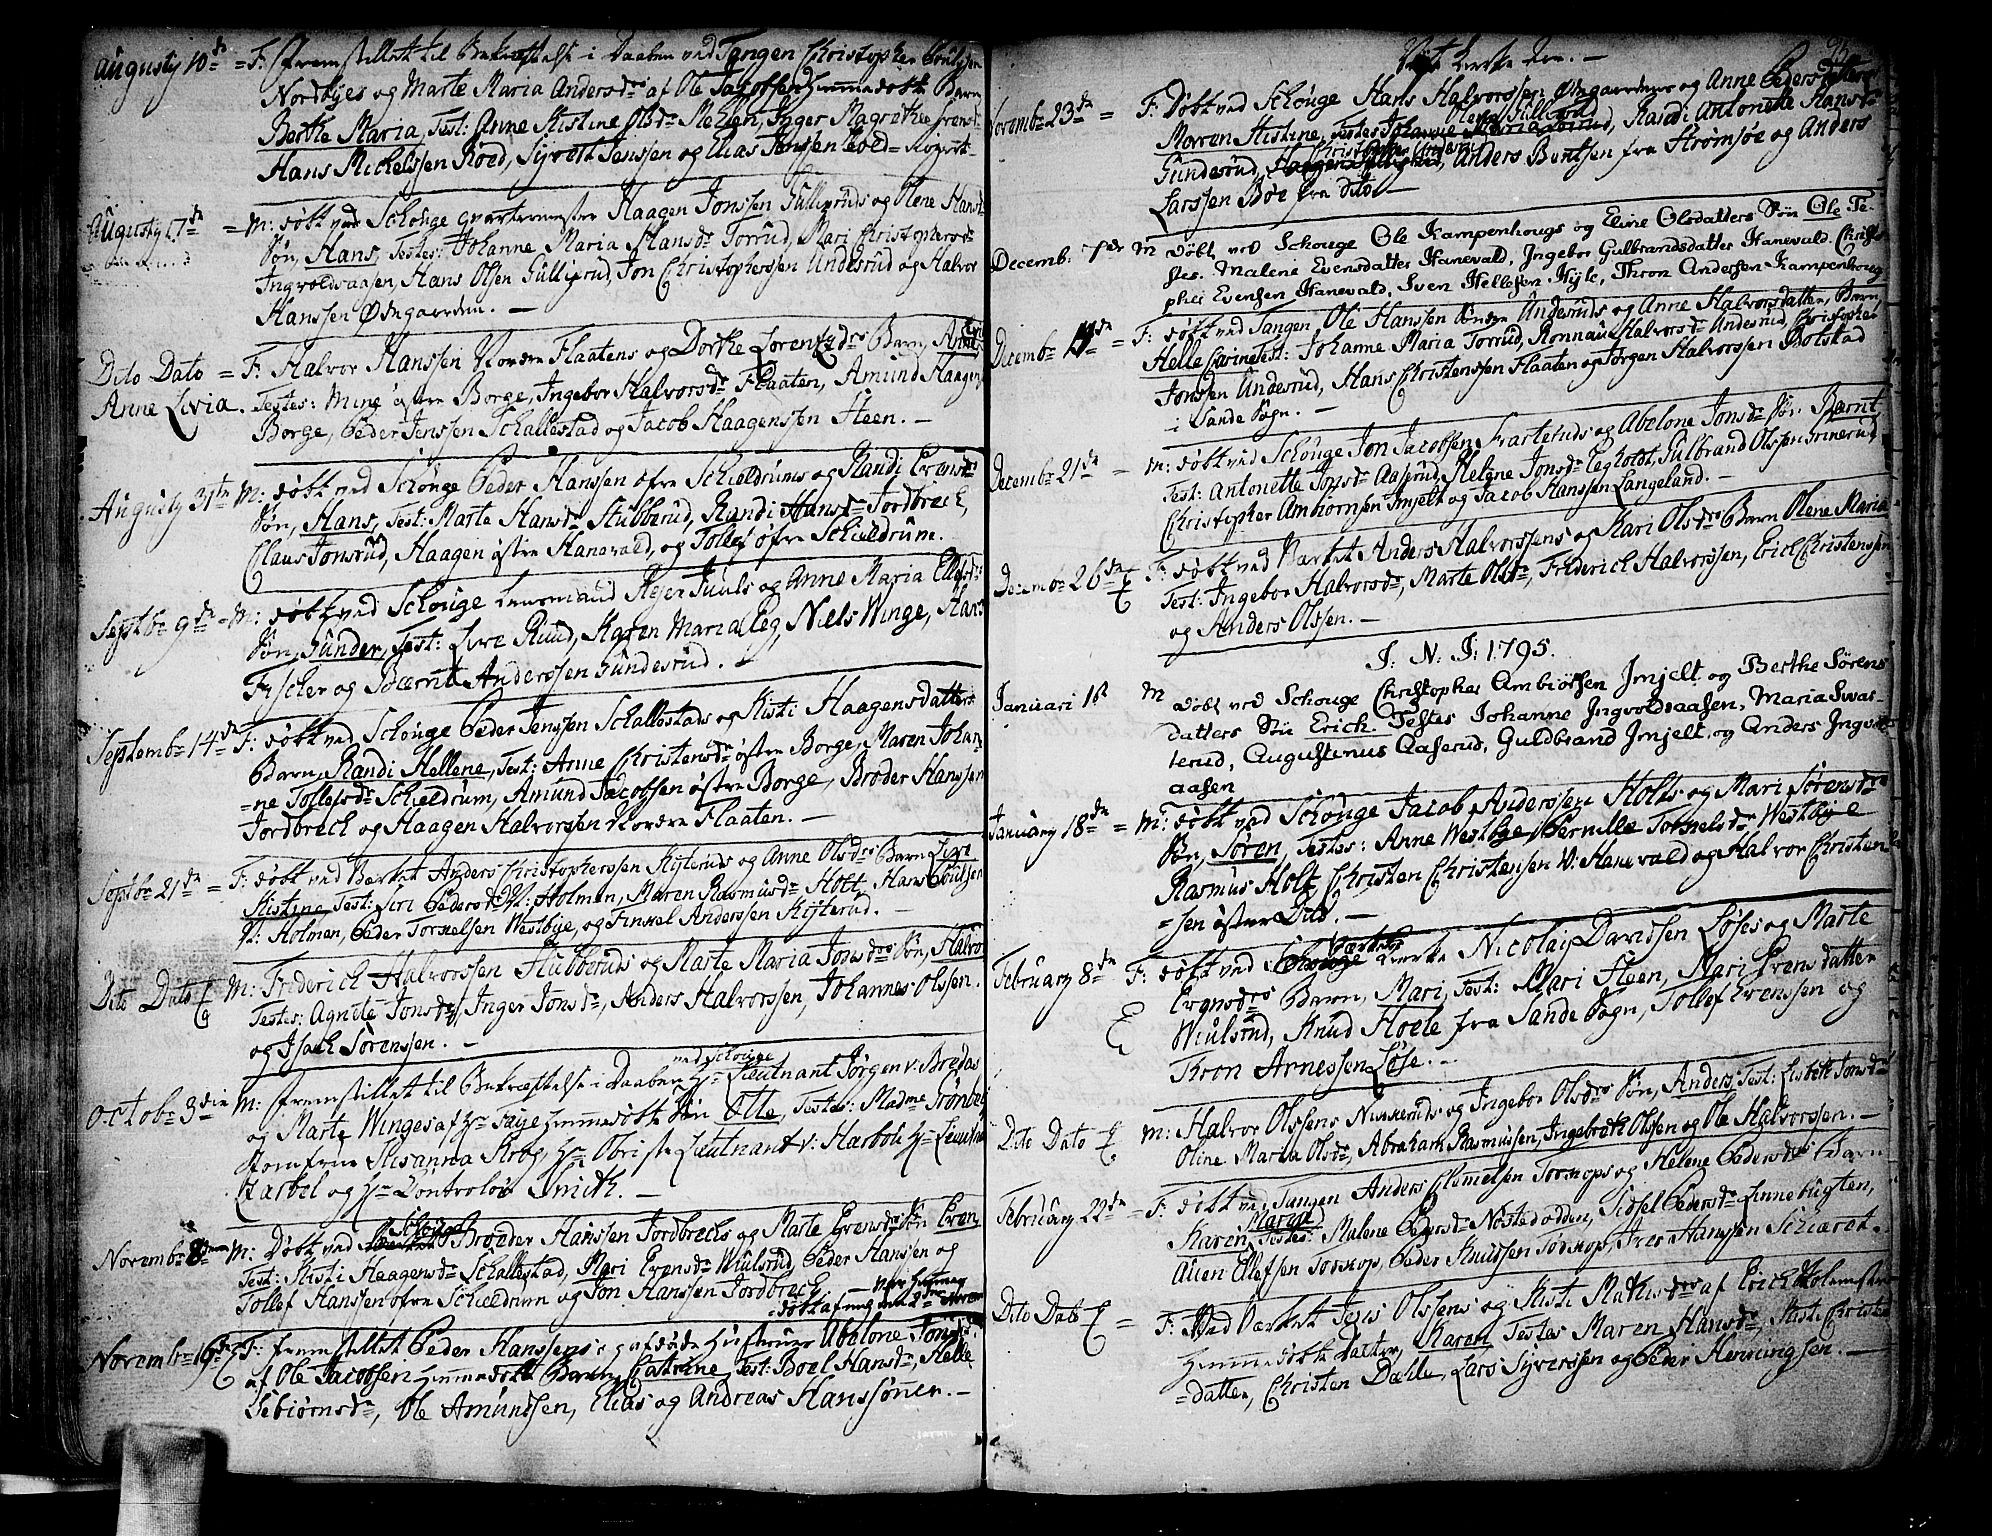 Augusty 10de = F: fremstillet til Bekræftelse i Daaben ved Tangen Christopher Poulsen
Nordbyes og Marte Maria Andersdr af Ole Jacobsen hiemmedøbte Barn
Berthe Maria, Test: Anne Kistine Olsdr Rehlen, Inger Magrethe
Hans Michelssen Roed, Syvert Jenssen og Elias Jenssen
Augusty 17de = M: døbt ved Schouge qvartermester Haagen Jonssen Gullixruds og Olene Hansd
Søn, Hans, Testes: Johanne Maria Hansdr Torrud, Mari Christophersdr
Ingvoldsaasen, Hans Olsen Gulliprud, Jon Christopherssen Underud og Halvor
Hanssen Ødegaarden. —
Dito Dato = F: Halvor Hanssen Nordre Flaatens og Dorthe Lorentzdrs Barn, Anne
Anne Livia. Testes: Ming østre Borge, Ingebor Halvorsdr Flaaten, Amund Haagens
Borge, Peder Jenssen Schallestad og Jacob Haagenssen Steen. —
Augusty 31te M: døbt ved Schouge Peder Hanssen øfre Schieldrums og Randi Evensdrs
Søn, Hans, Test: Marte Hansdr Stubberud, Randi Hansdr Jordbrech,
Claus Jonsrud, Haagen østre Hanevald, og Tollef øfre Schieldrum.
Septbr 9de = M: døbt ved Schouge Lensmand Rejer Juuls og Anne Maria Ellefsdrs
Søn, Gunder, Test: Live Ruud, Karen Maria Peg, Niels Winge, Hans
Fischer og Bærnt Anderssen Gundesrud. —
Septembr 14de F: døbt ved Schouge Peder Jenssen Schallestads og Kisti Haagensdatters
Barn, Randi Hellene, Test: Anne Christensdr østre Borge, Maren Johan-
=ne Tollefsdr Schieldrum, Amund Jacobsen østre Borge, Brøder Hanssen
Jordbrech og Haagen Halvorssen Nordre Flaaten. —
Septbr 21de = F: døbt ved Værket Anders Christopherssen Kisteruds og Anne Olsdrs Barn Live
Kistine, Test: Siri Pedersdr N: Holmen, Maren Rasmusdr Holt, Hans Poulsen
N: Holmen, Peder Torkelsen Westbye, og Finkel Anderssen Kisterud. —
Dito Dato E M: Friderich Halvorssen Stubberuds og Marte Maria Jonsdrs Søn, Halvor
Testes: Agnete Jonsdr, Inger Jonsdr, Anders Halvorssen, Johannes Olssen.
og Isach Sørenssen. —
ved Schouge
Octobr 3die M: fremstillet til Bekræftelse i Daaben Hr Lieutnant Jørgen v: Bredas
og Marte Winges af Hr Faye hiemmedøbte Søn Otte, Testes: Madme Strønberg
Jomfrue Susanna Krog, Hr Obriste Lieutnant v: Harboe Hr Lieutnant
Harbel og Hr Controlør Smith. —
Schouge
Novembr 8de M: Døbt ved Brøder Hanssen Jordbrechs og Marte Evensdrs Søn Even
Test: Kisti Haagensdr Schallestad, Mari Evensdr Wiulsrud, Peder Hanssen og
Tollef Hanssen øfre Schieldrum og Jon Hanssen Jordbrech —
Novembr 16de E F: fremstillet Peder Hanssens og afdøde Hustrues Abelone Jonsdr
af Ole Jacobsen hiemmedøbte Barn, Catrine, Test: Boel Hansdr, Helle
Tebiørnsdr, Ole Amundsen, Elias og Andreas Hanssønner. —
95
Novembr 23de = F: Døbt ved Schouge Hans Halvorssen Ødegaardens og Anne Pedersdatters
Maren Kistine, Testes Johanne Maria Torrud, Randi Antonette Hansdr
Gunderud, Anders Bentsen fra Strømsøe og Anders
Larssen Bøe fra dito —
Decemb. 7de M døbt ved Schouge Ole Kampenhougs og Eline Olsdatters Søn Ole Te-
stes. Malene Evensdatter Hanevald, Ingebor Gulbrandsdatter Hanevald. Christo
pher Evensen Hanevald, Sven Hellesen Hyle, Thron Andersen Kampenhoug
Decembr 14de = F: døbt ved Tangen, Ole Hanssen Søndre Underuds og Anne Halvorsdatters, Barn,
Helle Carine Test: Johanne Maria Torrud, Ronnaue Halvorsdr Underud, Christopher
Jonssen Underud, Hans Christenssen Flaaten og Jørgen Halvorssen Bolstad
i Sande Sogn. —
Decembr 21de = M: døbt ved Schouge Jon Jacobsen Frasteruds og Abelone Jonsdr Søn. Bærnt
Test: Antonette Jonsdr Aaserud, Helene Jonsdr Egholdt, Gulbrand Olssen Grinerud,
Christopher Ambiornsen Imjelt og Jacob Hanssen Langeland. —
Decembr 26de E F: døbt ved Værket Anders Halvorssens og Kari Olsdrs Barn Olene Maria
Test: Ingebor Halvorsdr, Marte Olsdr, Friderich Halvorssen, Erich Christensen
og Anders Olssen. —
J: N: J: 1795.
Januari 18 M døbt ved Schouge Christopher Ambiörsen Imjelt og Berthe Sörens
datters Sön Erich. Testes Johanne Ingvoldsaasen, Maria Svar-
terud, Augustenus Aaserud, Guldbrand Imjelt, og Anders Ingvolds
aasen
January 18de = M: døbt ved Schouge Jacob Anderssen Holts og Mari Sørensdrs
Søn, Søren, Testes: Anne Westbye, Pernille Torkelsdr Westbye
Rasmus Holt, Christen Christensen V: Hanevald og Halvor Christen
=sen østre Dito. —
February 8de F: døbt ved Værkets Kierke Nicolay Davidsen Løses og Marte
Evensdrs Barn, Mari, Test: Mari Steen, Mari Evensdatter
E Wiulsrud, Knud Hoele fra Sande Sogn, Tollef Evenssen og
Thron Arnessen Løse. —
Dito Dato E M: Halvor Olssens Nukkeruds og Ingebor Olsdrs Søn, Anders, Test: Lisbeth Jonsdr
Oline Maria Olsdr, Abraham Rasmussen, Ingebreth Olssen og Ole Halvorssen. —
February 22de = F: døbt ved Tangen Anders Clemetsen Torskops og Helene Pedersdrs Barn
Karen Maria Testes: Malene Pedersdr Nostedodden, Sidsel Pedersdr Linnebugten,
Auen Olefsen Torskop, Peder Knudssen Torskop, Iver Hanssen Schiaret. —
Dito Dato E = F: Ved Værket Jens Olssens og Kisti Mathisdrs af Erich Holmestr
hiemmedøbte Datter, Karen Testes Maren Hansdr, Kisti Christen
=datter, Christen Dæhle, Lars Syverssen og Peder Henningsen. —